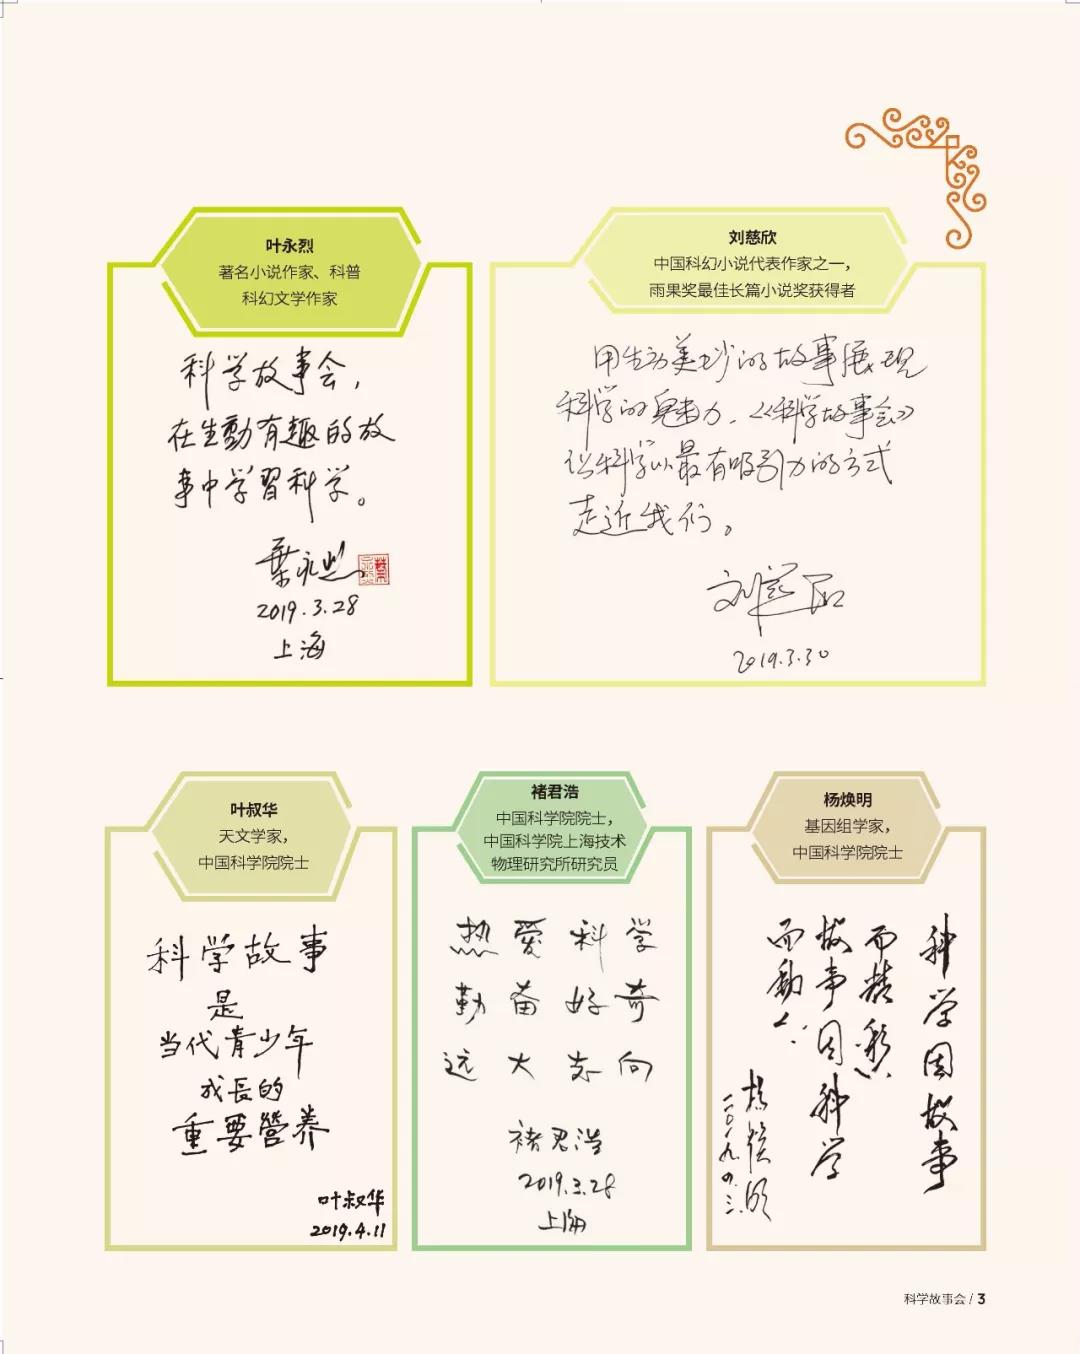 叶永烈
著名小说作家、科普
科幻文学作家
科学故事会，
在生動有趣的故
事中学習科学。
葉永烈
2019.3.28
上海
刘慈欣
中国科幻小说代表作家之一，
雨果奖最佳长篇小说奖获得者
用生动美妙的故事展现
科学的魅力，《科学故事会》
让科学以最有吸引力的方式
走近我们。
刘慈欣
2019.3.30
叶叔华
天文学家，
中国科学院院士
科学故事
是
当代青少年
成長的
重要營养
叶叔华
2019.4.11
褚君浩
中国科学院院士，
中国科学院上海技术
物理研究所研究员
热爱科学
勤奋好奇
远大志向
褚君浩
2019.3.28
上海
杨焕明
基因组学家，
中国科学院院士
科学因故事
而精彩
故事因科学
而動人
杨焕明
二〇一九.四.三.
科学故事会 / 3